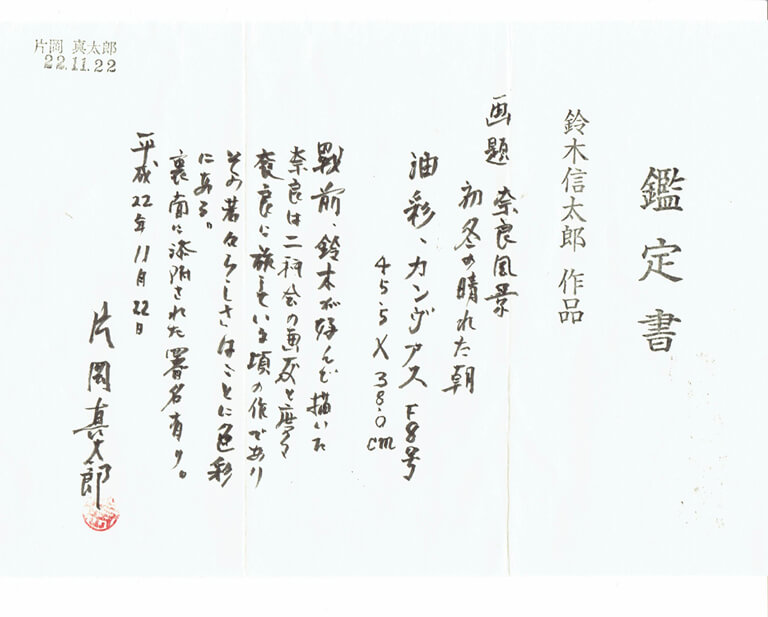 鑑定書
鈴木信太郎 作品
画題 奈良風景
初冬の晴れた朝
油彩、カンヴァス F8号
45.5×38.0cm
戦前、鈴木が好んで描いた
奈良は二科会の画友と度々
奈良に旅をしていた頃の作であり
その若々らしさはことに色彩
にある。
裏面に添附された署名有り。
平成22年11月22日
片岡真太郎
片岡 真太郎
22.11.22